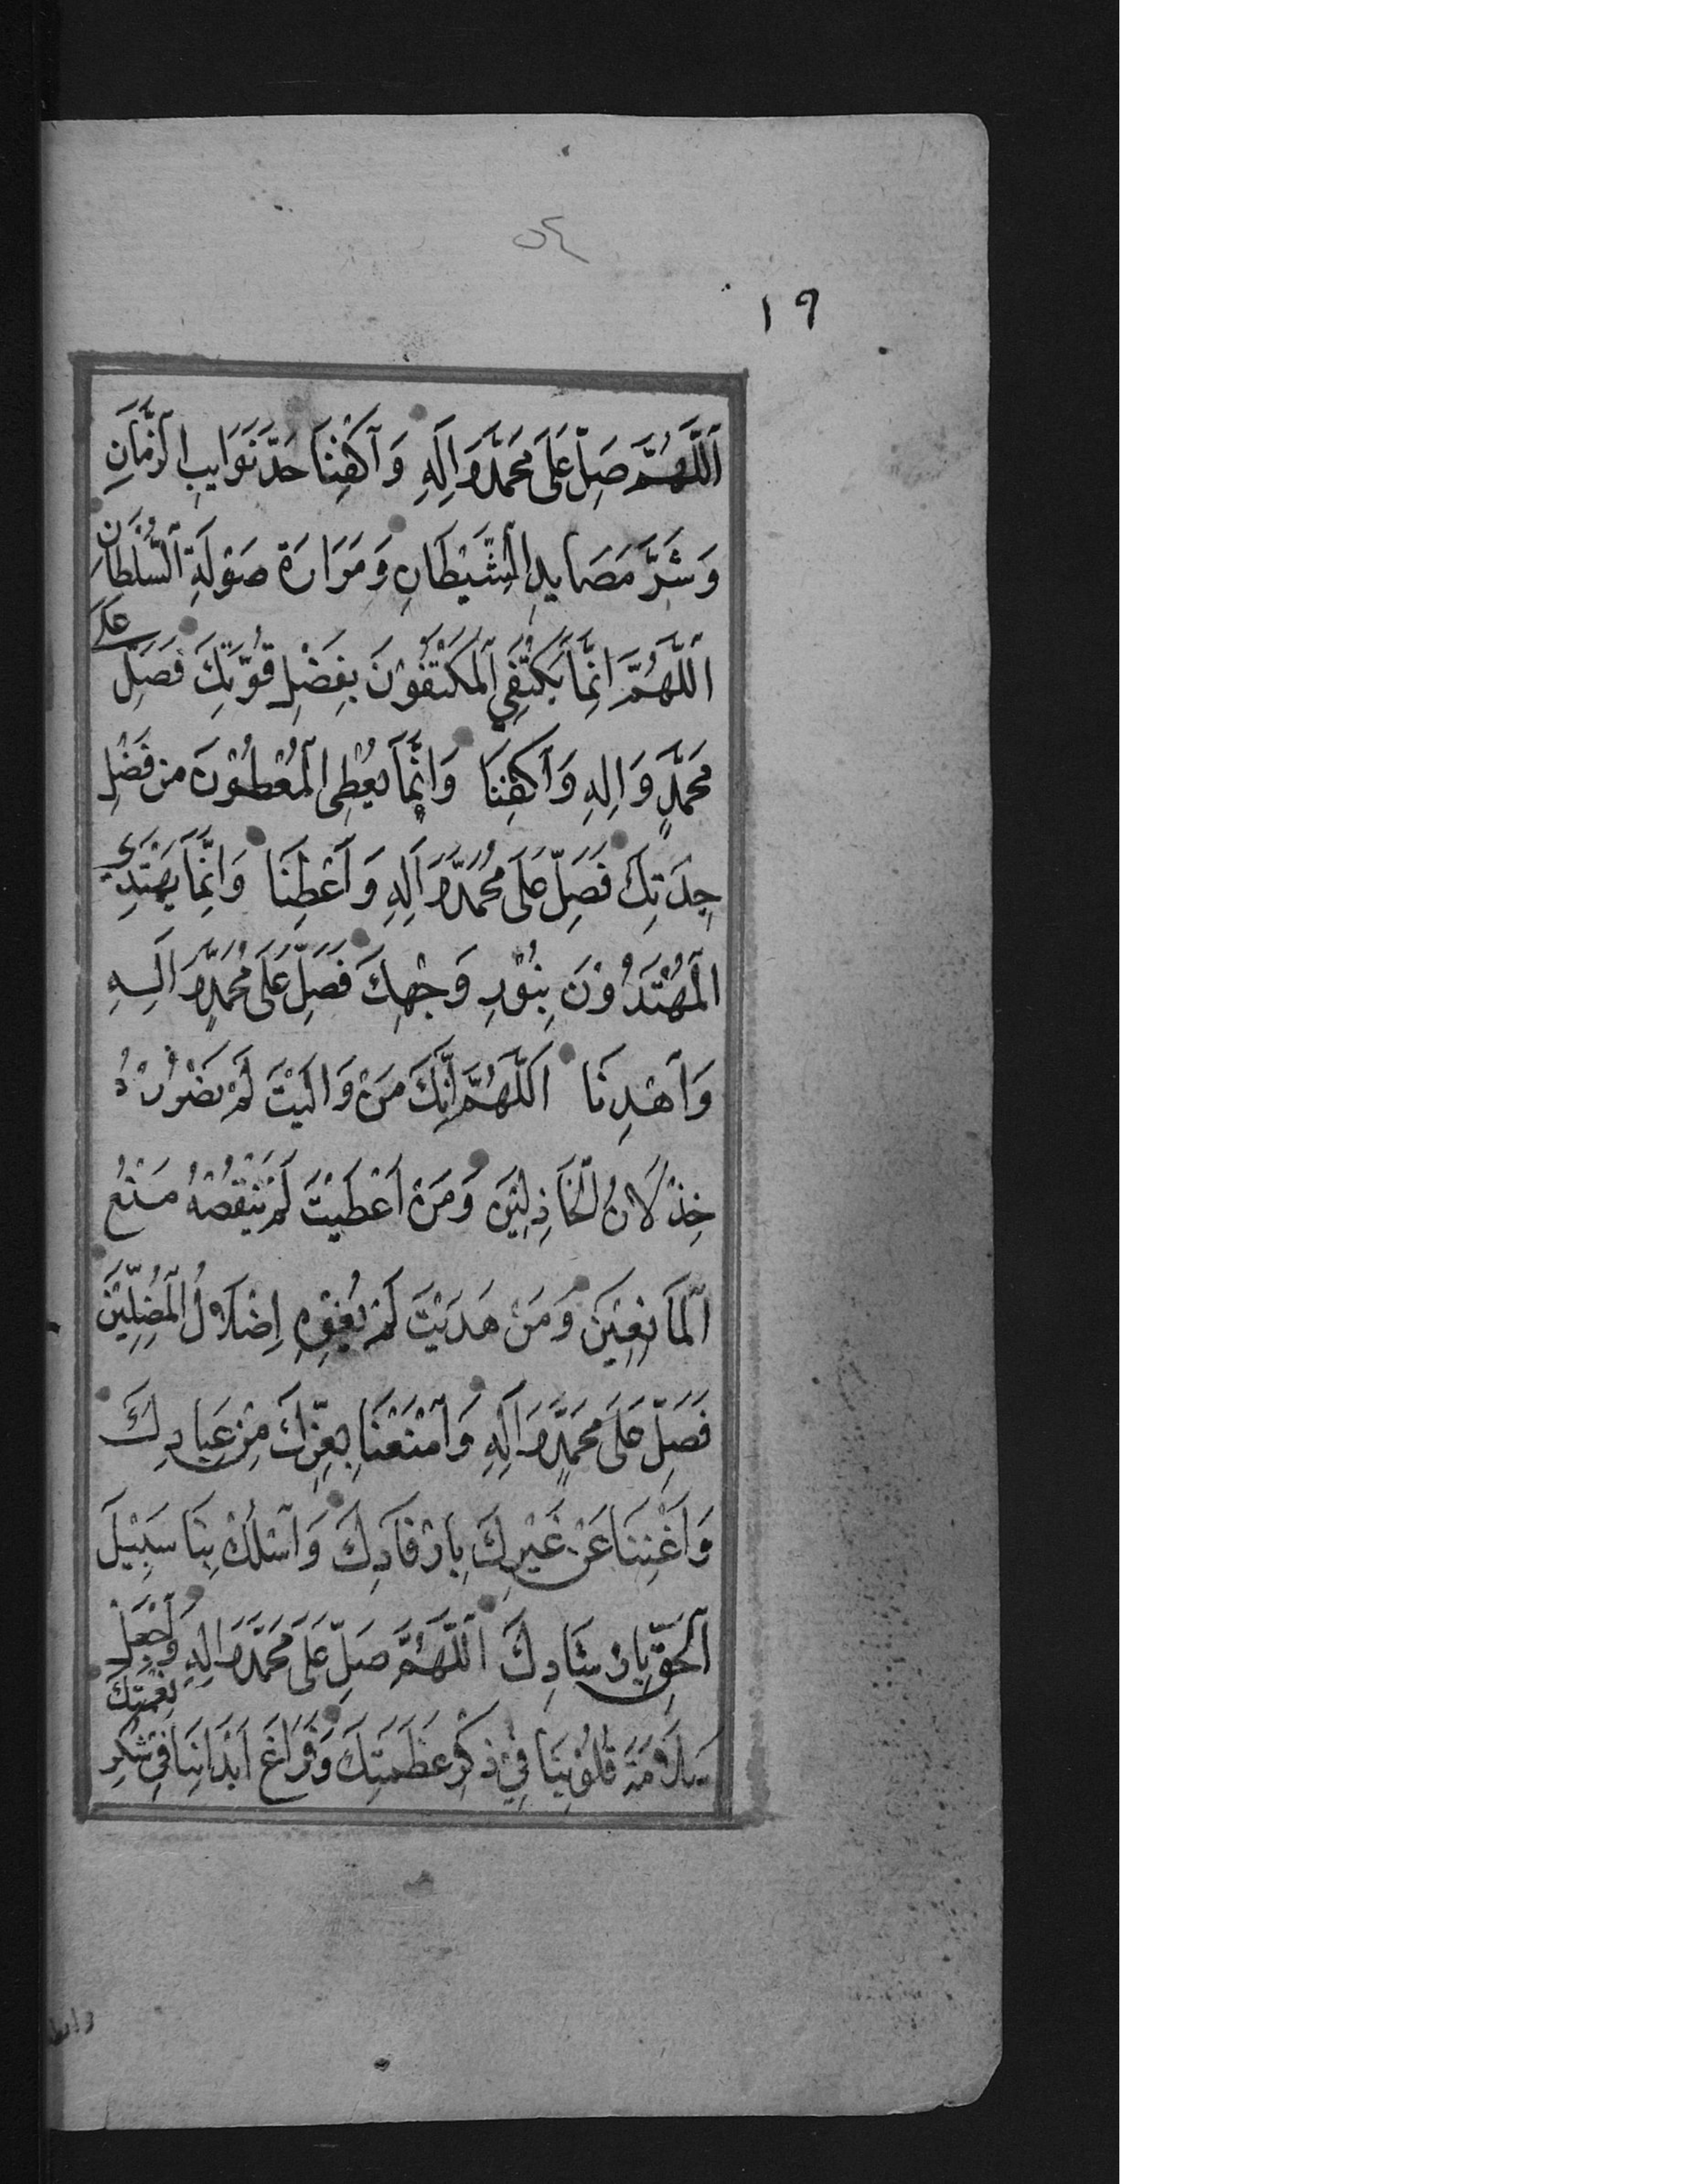 ٥٤
١٩
اَللّٰهُمَّ صَلِّ عَلٰى مُحَمَّدٍ وَاٰلِهِ وَاكْفِنَا حَدَّ نَوَايِبِ الزَّمَانِ
وَشَرَّ مَصَايِدِ الشَّيْطَانِ وَمَرَارَةَ صَوْلَةِ السُّلْطَانِ
اَللّٰهُمَّ اِنَّمَا يَكْتَفِي الْمُكْتَفُوْنَ بِفَضْلِ قُوَّتِكَ فَصَلِّ عَلٰى
مُحَمَّدٍ وَاٰلِهِ وَاكْفِنَا وَاِنَّمَا يُعْطِى الْمُعْطُوْنَ مِنْ فَضْلِ
جِدَتِكَ فَصَلِّ عَلٰى مُحَمَّدٍ وَاٰلِهِ وَاَعْطِنَا وَاِنَّمَا يَهْتَدِي
الْمُهْتَدُوْنَ بِنُوْرِ وَجْهِكَ فَصَلِّ عَلٰى مُحَمَّدٍ وَاٰلِهِ
وَاهْدِنَا اَللّٰهُمَّ اِنَّكَ مَنْ وَالَيْتَ لَمْ يَضْرُرْهُ
خِذْلَانُ الْخَاذِلِيْنَ وَمَنْ اَعْطَيْتَ لَمْ يَنْقُصْهُ مَنْعُ
الْمَانِعِيْنَ وَمَنْ هَدَيْتَ لَمْ يُغْوِهِ اِضْلَالُ الْمُضِلِّيْنَ
فَصَلِّ عَلٰى مُحَمَّدٍ وَاٰلِهِ وَامْنَعْنَا بِعِزِّكَ مِنْ عِبَادِكَ
وَاَغْنِنَا عَنْ غَيْرِكَ بِاِرْفَادِكَ وَاسْلُكْ بِنَا سَبِيْلَ
الْحَقِّ بِاِرْشَادِكَ اَللّٰهُمَّ صَلِّ عَلٰى مُحَمَّدٍ وَاٰلِهِ وَاجْعَلْ
سَلَامَةَ قُلُوْبِنَا فِيْ ذِكْرِ عَظَمَتِكَ وَفَرَاغَ اَبْدَانِنَا فِيْ شُكْرِ نِعْمَتِكَ